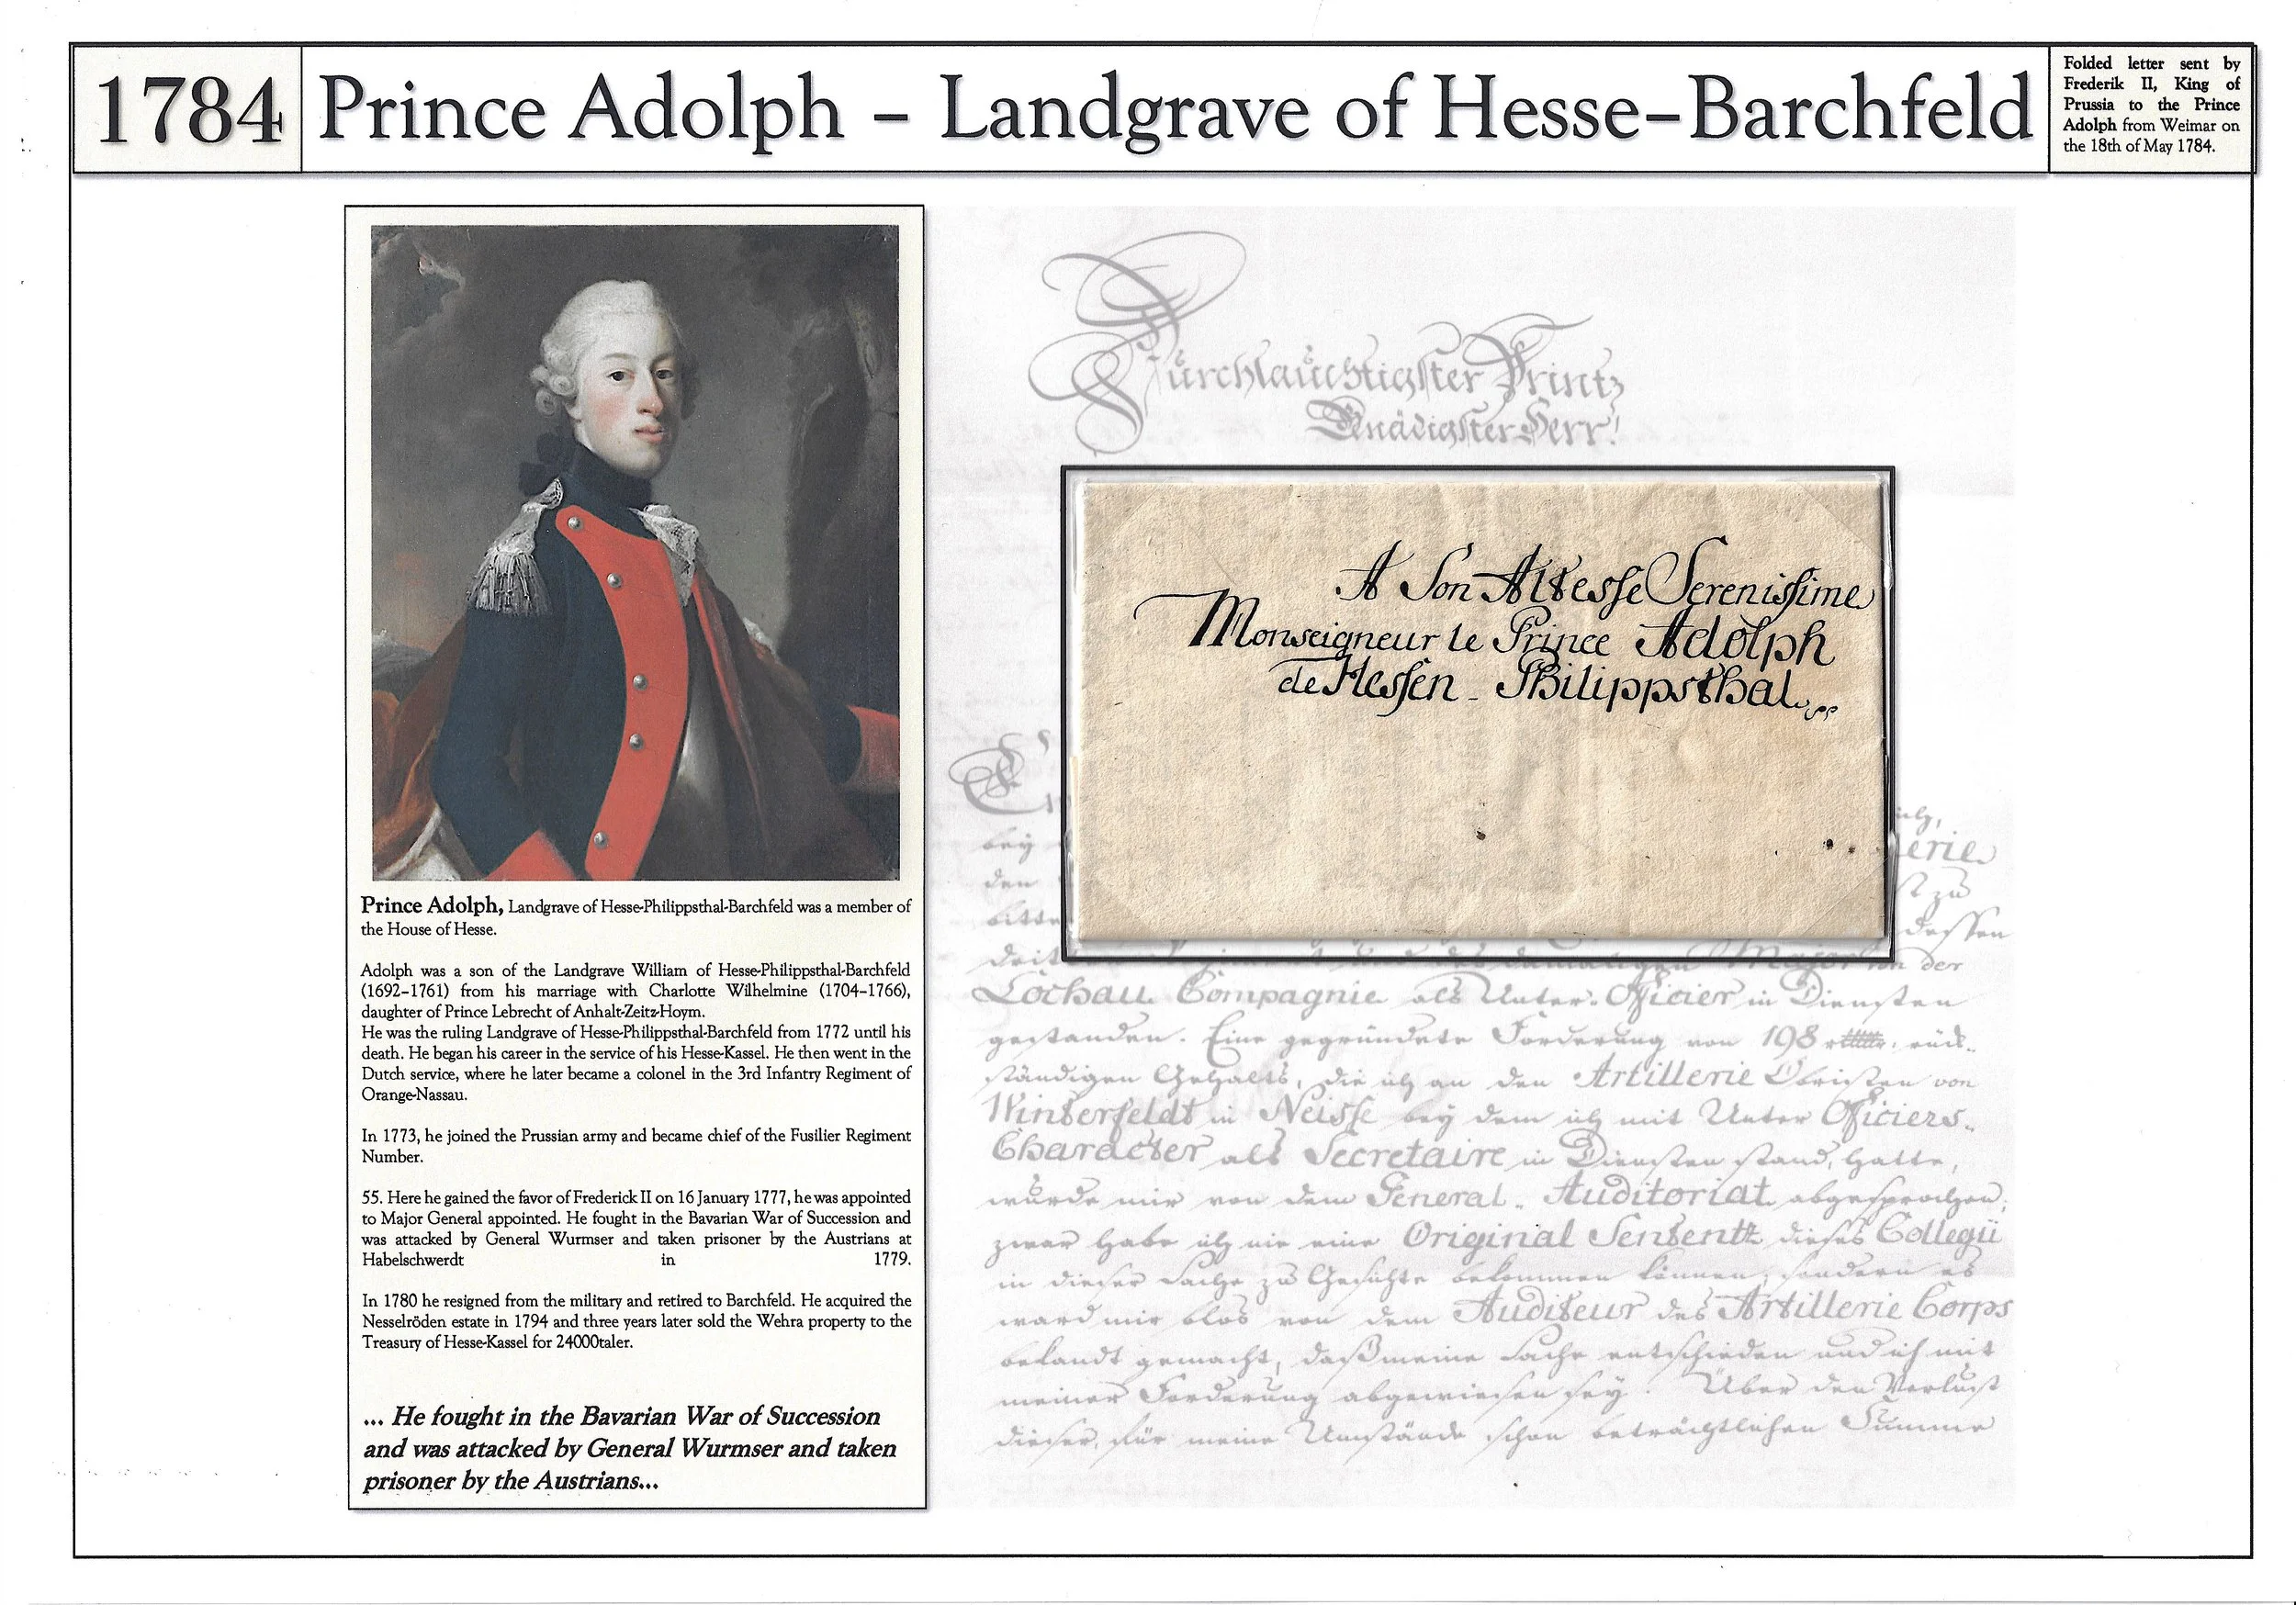 1784
Prince Adolph – Landgrave of Hesse-Barchfeld
Folded letter sent by
Frederik II, King of
Prussia to the Prince
Adolph from Weimar on
the 18th of May 1784.
Prince Adolph, Landgrave of Hesse-Philippsthal-Barchfeld was a member of
the House of Hesse.
Adolph was a son of the Landgrave William of Hesse-Philippsthal-Barchfeld
(1692–1761) from his marriage with Charlotte Wilhelmine (1704–1766),
daughter of Prince Lebrecht of Anhalt-Zeitz-Hoym.
He was the ruling Landgrave of Hesse-Philippsthal-Barchfeld from 1772 until his
death. He began his career in the service of his Hesse-Kassel. He then went in the
Dutch service, where he later became a colonel in the 3rd Infantry Regiment of
Orange-Nassau.
In 1773, he joined the Prussian army and became chief of the Fusilier Regiment
Number.
55. Here he gained the favor of Frederick II on 16 January 1777, he was appointed
to Major General appointed. He fought in the Bavarian War of Succession and
was attacked by General Wurmser and taken prisoner by the Austrians at
Habelschwerdt in 1779.
In 1780 he resigned from the military and retired to Barchfeld. He acquired the
Nesselröden estate in 1794 and three years later sold the Wehra property to the
Treasury of Hesse-Kassel for 24000taler.
... He fought in the Bavarian War of Succession
and was attacked by General Wurmser and taken
prisoner by the Austrians...
Durchlauchtigster Printz
Gnädigster Herr!
A Son Altesse Serenissime
Monseigneur le Prince Adolph
de Hessen - Philippsthal
bey
den
bitte
dessen
Major von der
Lochau Compagnie als Unter-Officier in Diensten
gestanden. Eine gegründete Forderung von 198 rück-
ständigen Gehalts, die ich an den Artillerie Obristen von
Winterfeldt in Neisse bey dem ich mit Unter Officiers-
Character als Secretaire in Diensten stand, hatte,
wurde mir von dem General-Auditoriat abgesprochen;
zwar habe ich nie eine Original Sententz dieses Collegii
in dieser Sache zu Gesichte bekommen können, sondern es
ward mir blos von dem Auditeur des Artillerie Corps
bekandt gemacht, daß meine Sache entschieden und ich mit
meiner Forderung abgewiesen sey. Über den Verlust
dieser, für meine Umstände schon beträchtlichen Summe